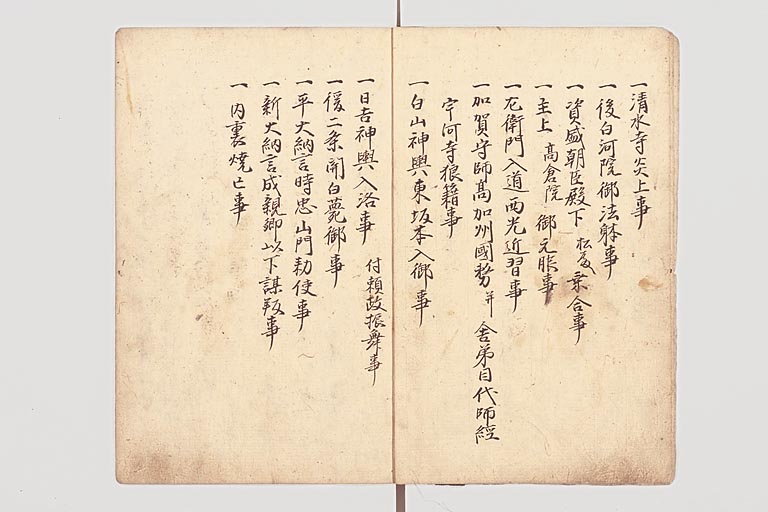 一清水寺炎上事
一後白河院御法躰事
一資盛朝臣殿下 松殿 乗合事
一主上 高倉院 御元服事
一左衛門入道西光近習事
一加賀守師高加州國務 并 舎弟目代師經
宇河寺狼籍事
一白山神輿東坂本入御事
一日吉神輿入洛事 付頼政振舞事
一後二条関白薨御事
一平大納言時忠山門勅使事
一新大納言成親卿以下謀叛事
一内裏焼亡事